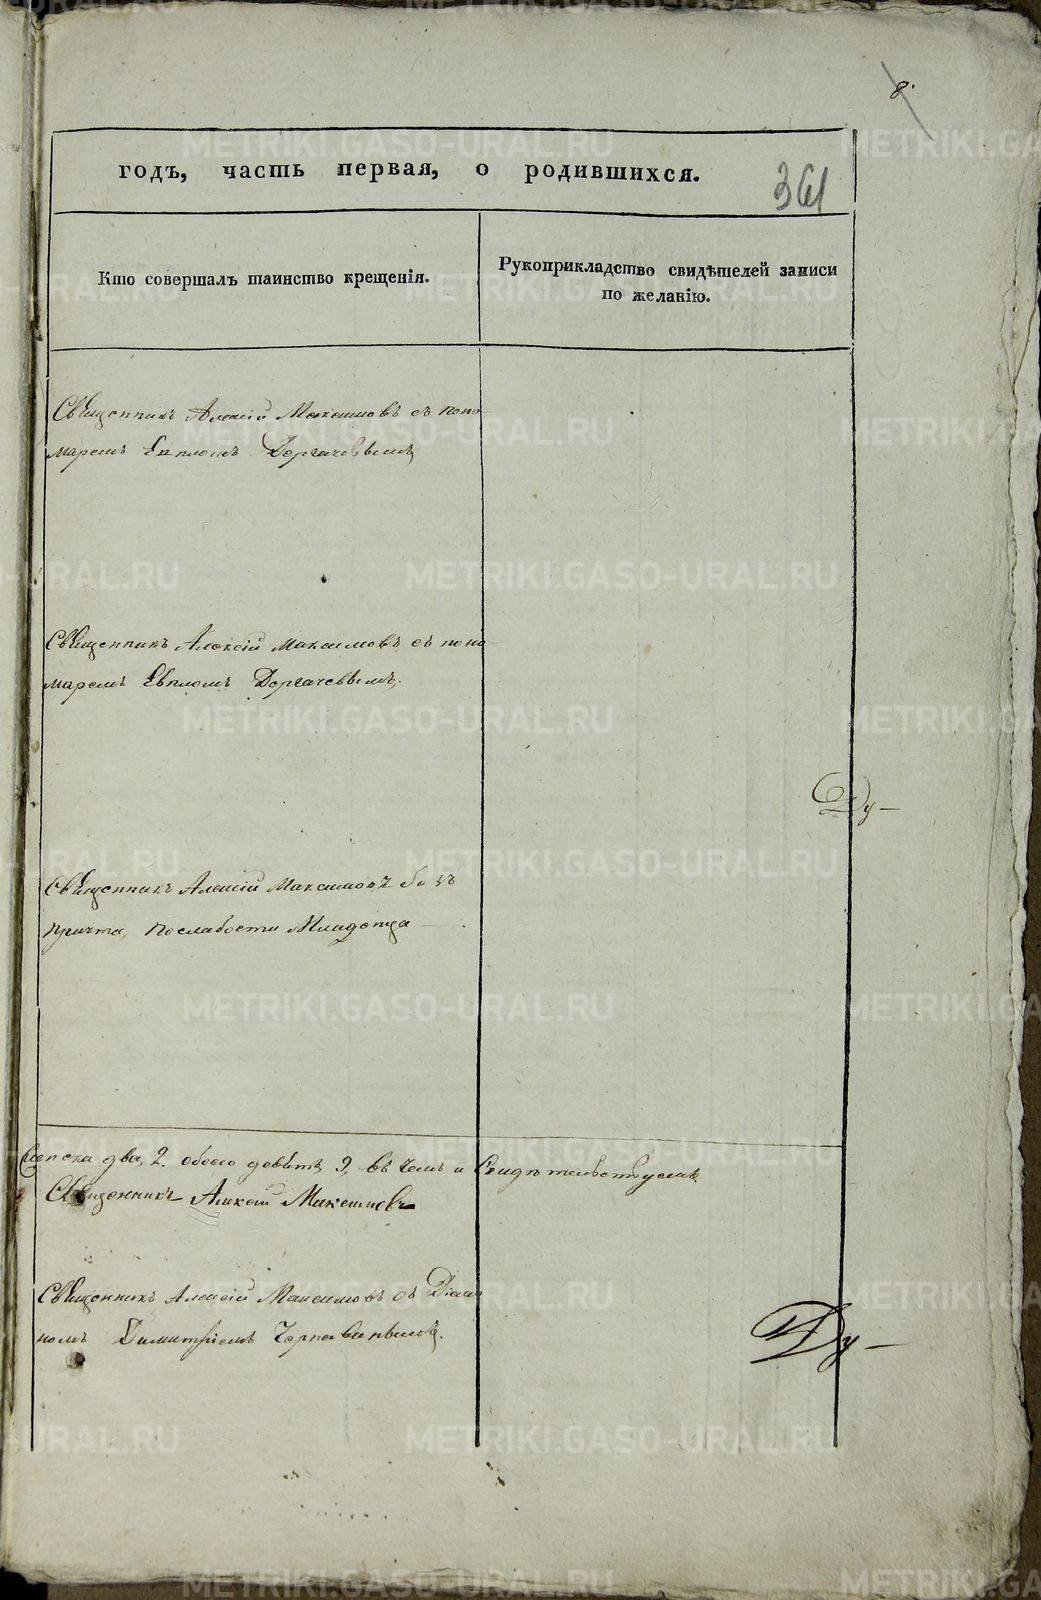 8.
годъ, часть первая, о родившихся.
361
Кто совершалъ таинство крещенія.
Рукоприкладство свидѣтелей записи
по желанію.
Священникъ Алексій Максимовъ съ поно
маремъ Евпломъ Дергачевымъ
Священникъ Алексій Максимовъ съ поно
маремъ Евпломъ Дергачевымъ.
Священникъ Алексій Максимовъ безъ
причта, послабости Младенца
Женска два, 2. обоего девять 9, въ чемъ и Свидѣтельствуемъ
Священникъ Алексій Максимовъ
Священникъ Алексій Максимовъ съ Діако
номъ Димитріемъ
METRIKI.GASO-URAL.RU